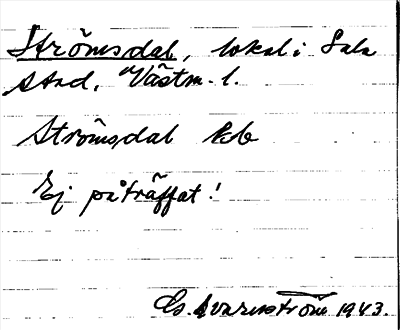 Strömsdal, lokal i Sala
stad, Västm. l.
Strömsdal
Ej påträffat!
G. Qvarnström 1943.